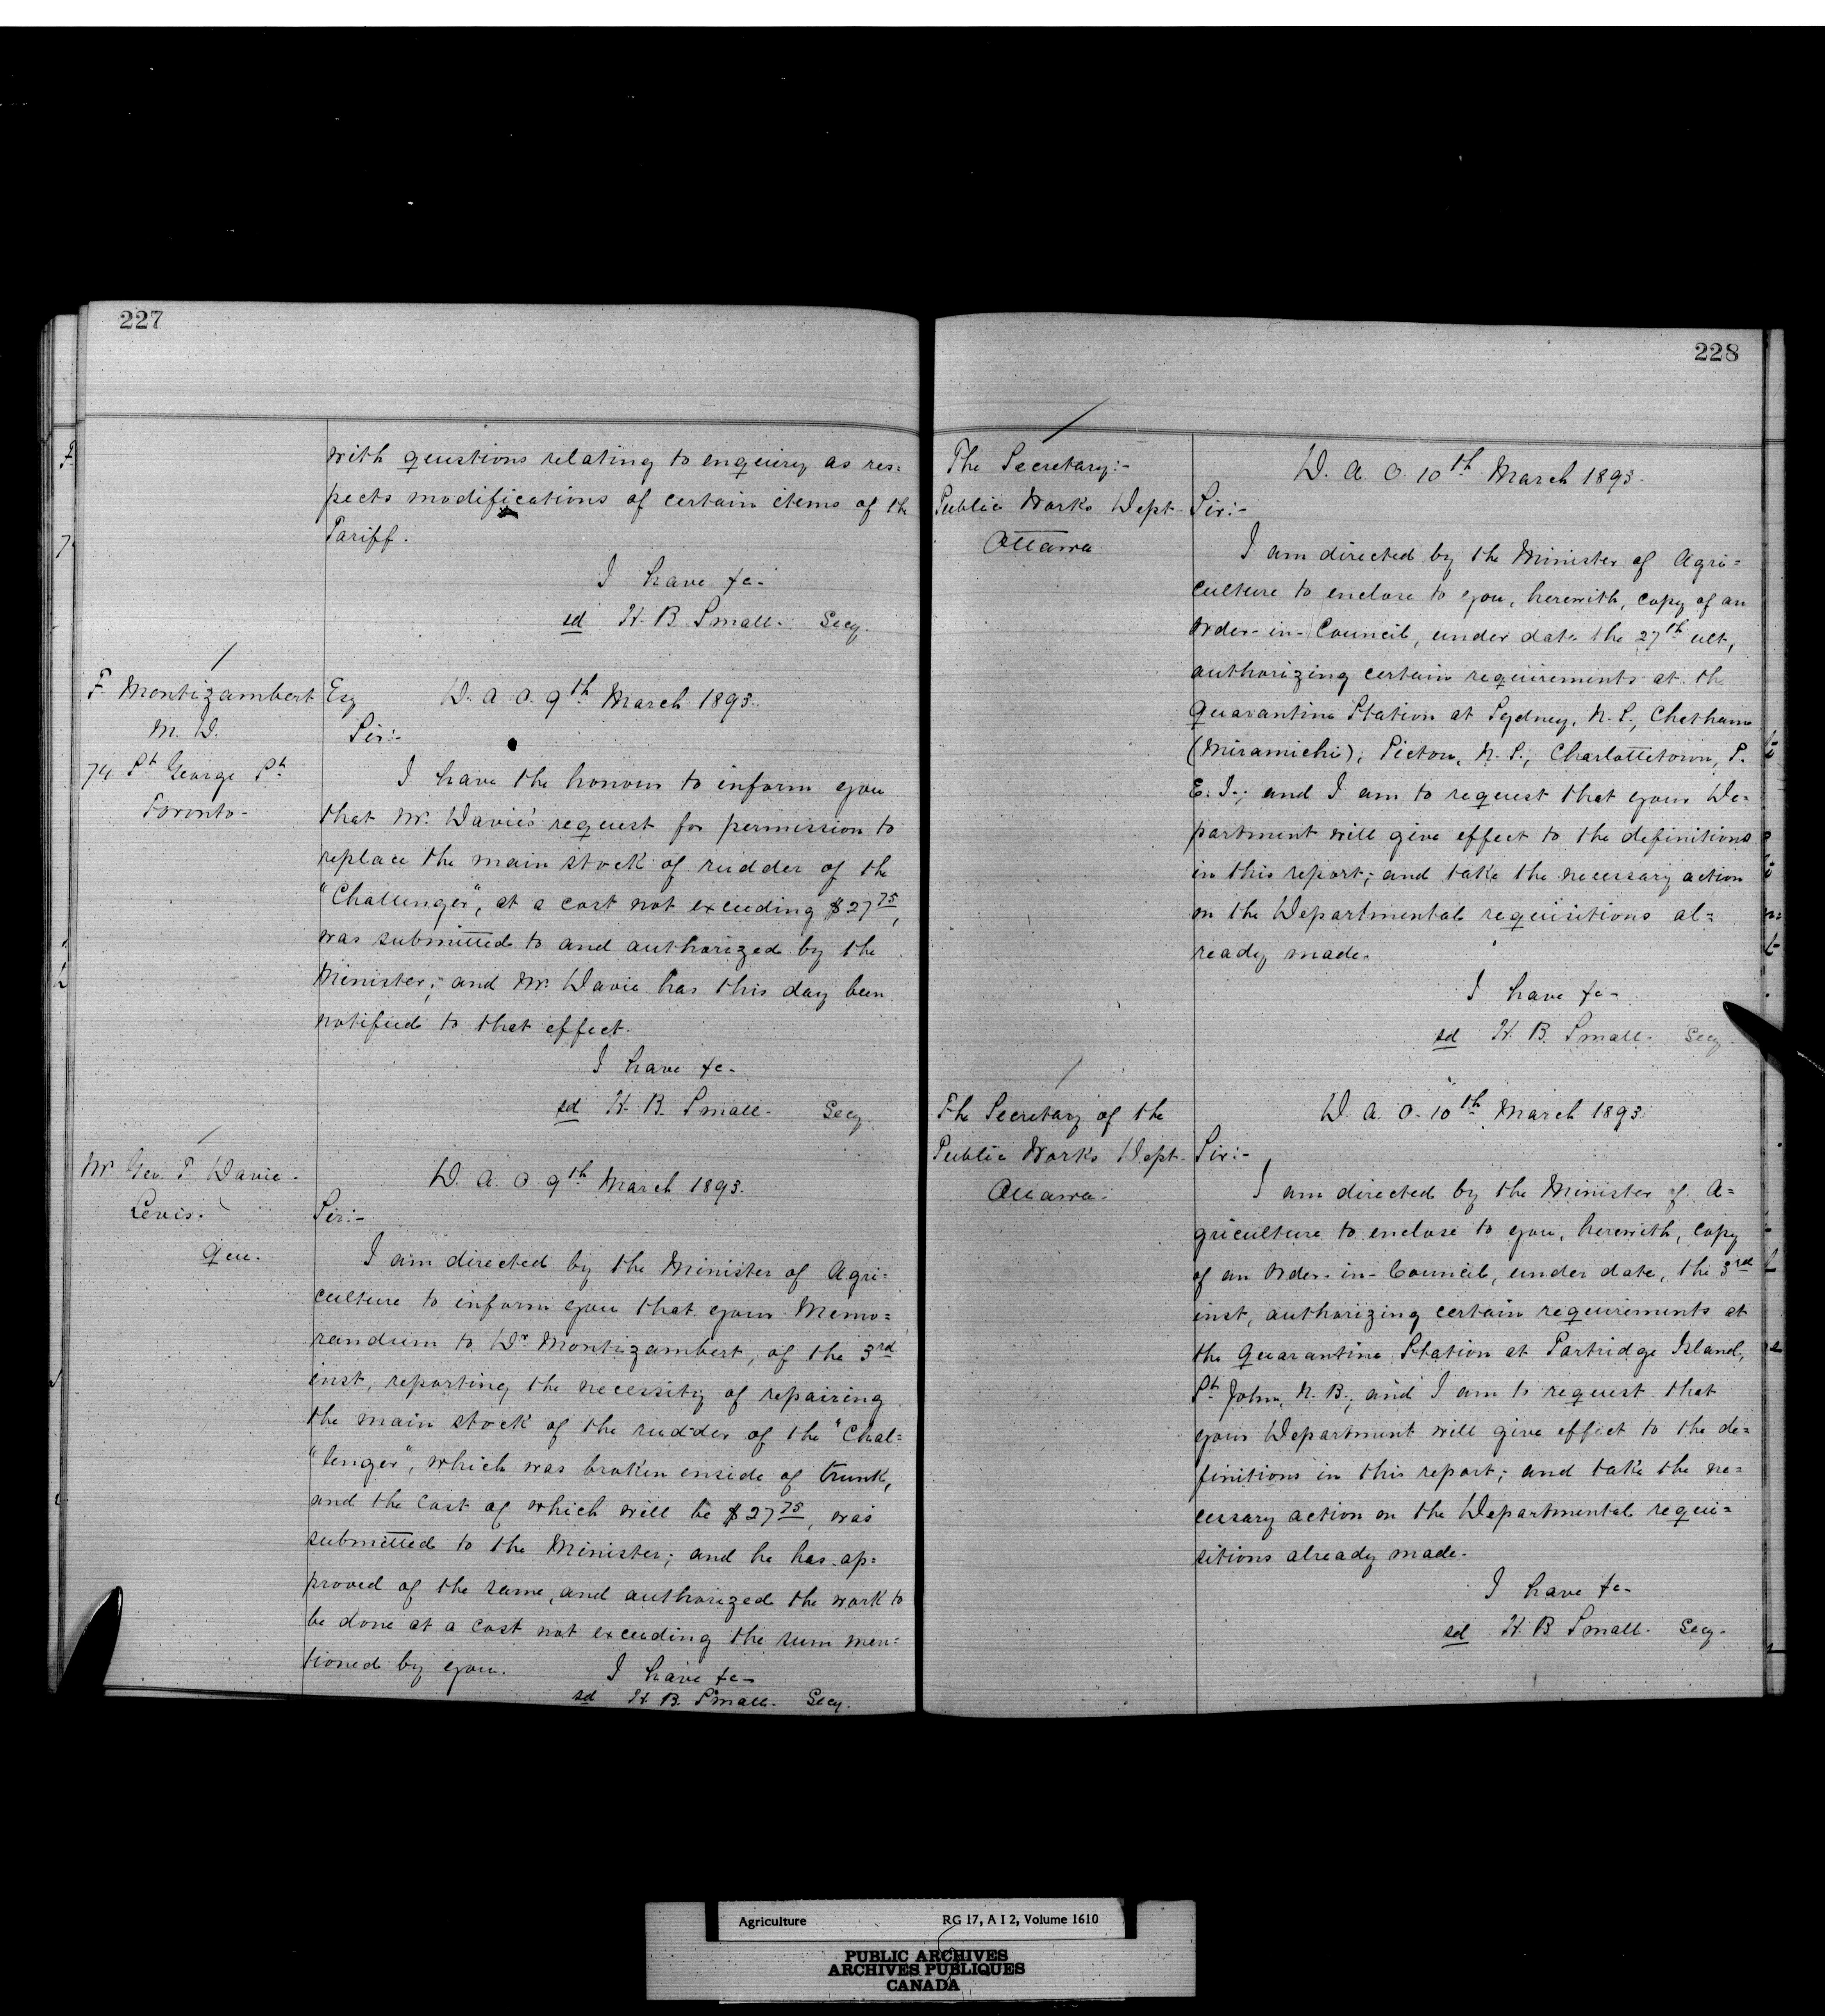 227
with questions relating to enquiry as res=
pects modifications of certain items of the
Tariff.
I have &c-
sd H. B. Small- Secy.
F. Montizambert Esq
M. D.
74 St George St
Toronto-
D. A. O. 9th March 1893.
Sir:-
I have the honour to inform you
that Mr. Davie's request for permission to
replace the main stock of rudder of the
"Challenger", at a cost not exceeding $27 75,
was submitted to and authorized by the
Minister; and Mr. Davie has this day been
notified to that effect.
I have &c-
sd H. B. Small- Secy
Mr Geo. T. Davie-
Levis.
Que.
D. A. O 9th March 1893.
Sir:-
I am directed by the Minister of Agri=
culture to inform you that your Memo=
randum to Dr. Montizambert, of the 3rd
inst, reporting the necessity of repairing
the main stock of the rudder of the "Chal=
"lenger", which was broken inside of trunk,
and the cost of which will be $27 75, was
submitted to the Minister; and he has ap=
proved of the same, and authorized the work to
be done at a cost not exceeding the sum men=
tioned by you.
I have &c-
sd H. B. Small- Secy.
228
The Secretary:-
Public Works Dept-
Ottawa.
D. A. O. 10th March 1893.
Sir:-
I am directed by the Minister of Agri=
culture to enclose to you, herewith, copy of an
Order-in-Council, under date the 27th ult,
authorizing certain requirements at the
Quarantine Station at Sydney, N. S., Chatham
(Miramichi); Pictou, N. S.; Charlottetown, P.
E. I.; and I am to request that your De=
partment will give effect to the definitions
in this report; and take the necessary action
on the Departmental requisitions al=
ready made.
I have &c-
sd H. B. Small- Secy.
The Secretary of the
Public Works Dept-
Ottawa-
D. A. O- 10th March 1893
Sir:-
I am directed by the Minister of A=
griculture to enclose to you, herewith, copy
of an Order-in-Council, under date, the 3rd
inst, authorizing certain requirements at
the Quarantine Station at Partridge Island,
St John, N. B.; and I am to request that
your Department will give effect to the de=
finitions in this report; and take the ne=
cessary action on the Departmental requi=
sitions already made.
I have &c-
sd H. B. Small- Secy-
Agriculture RG 17, A I 2, Volume 1610
PUBLIC ARCHIVES
ARCHIVES PUBLIQUES
CANADA